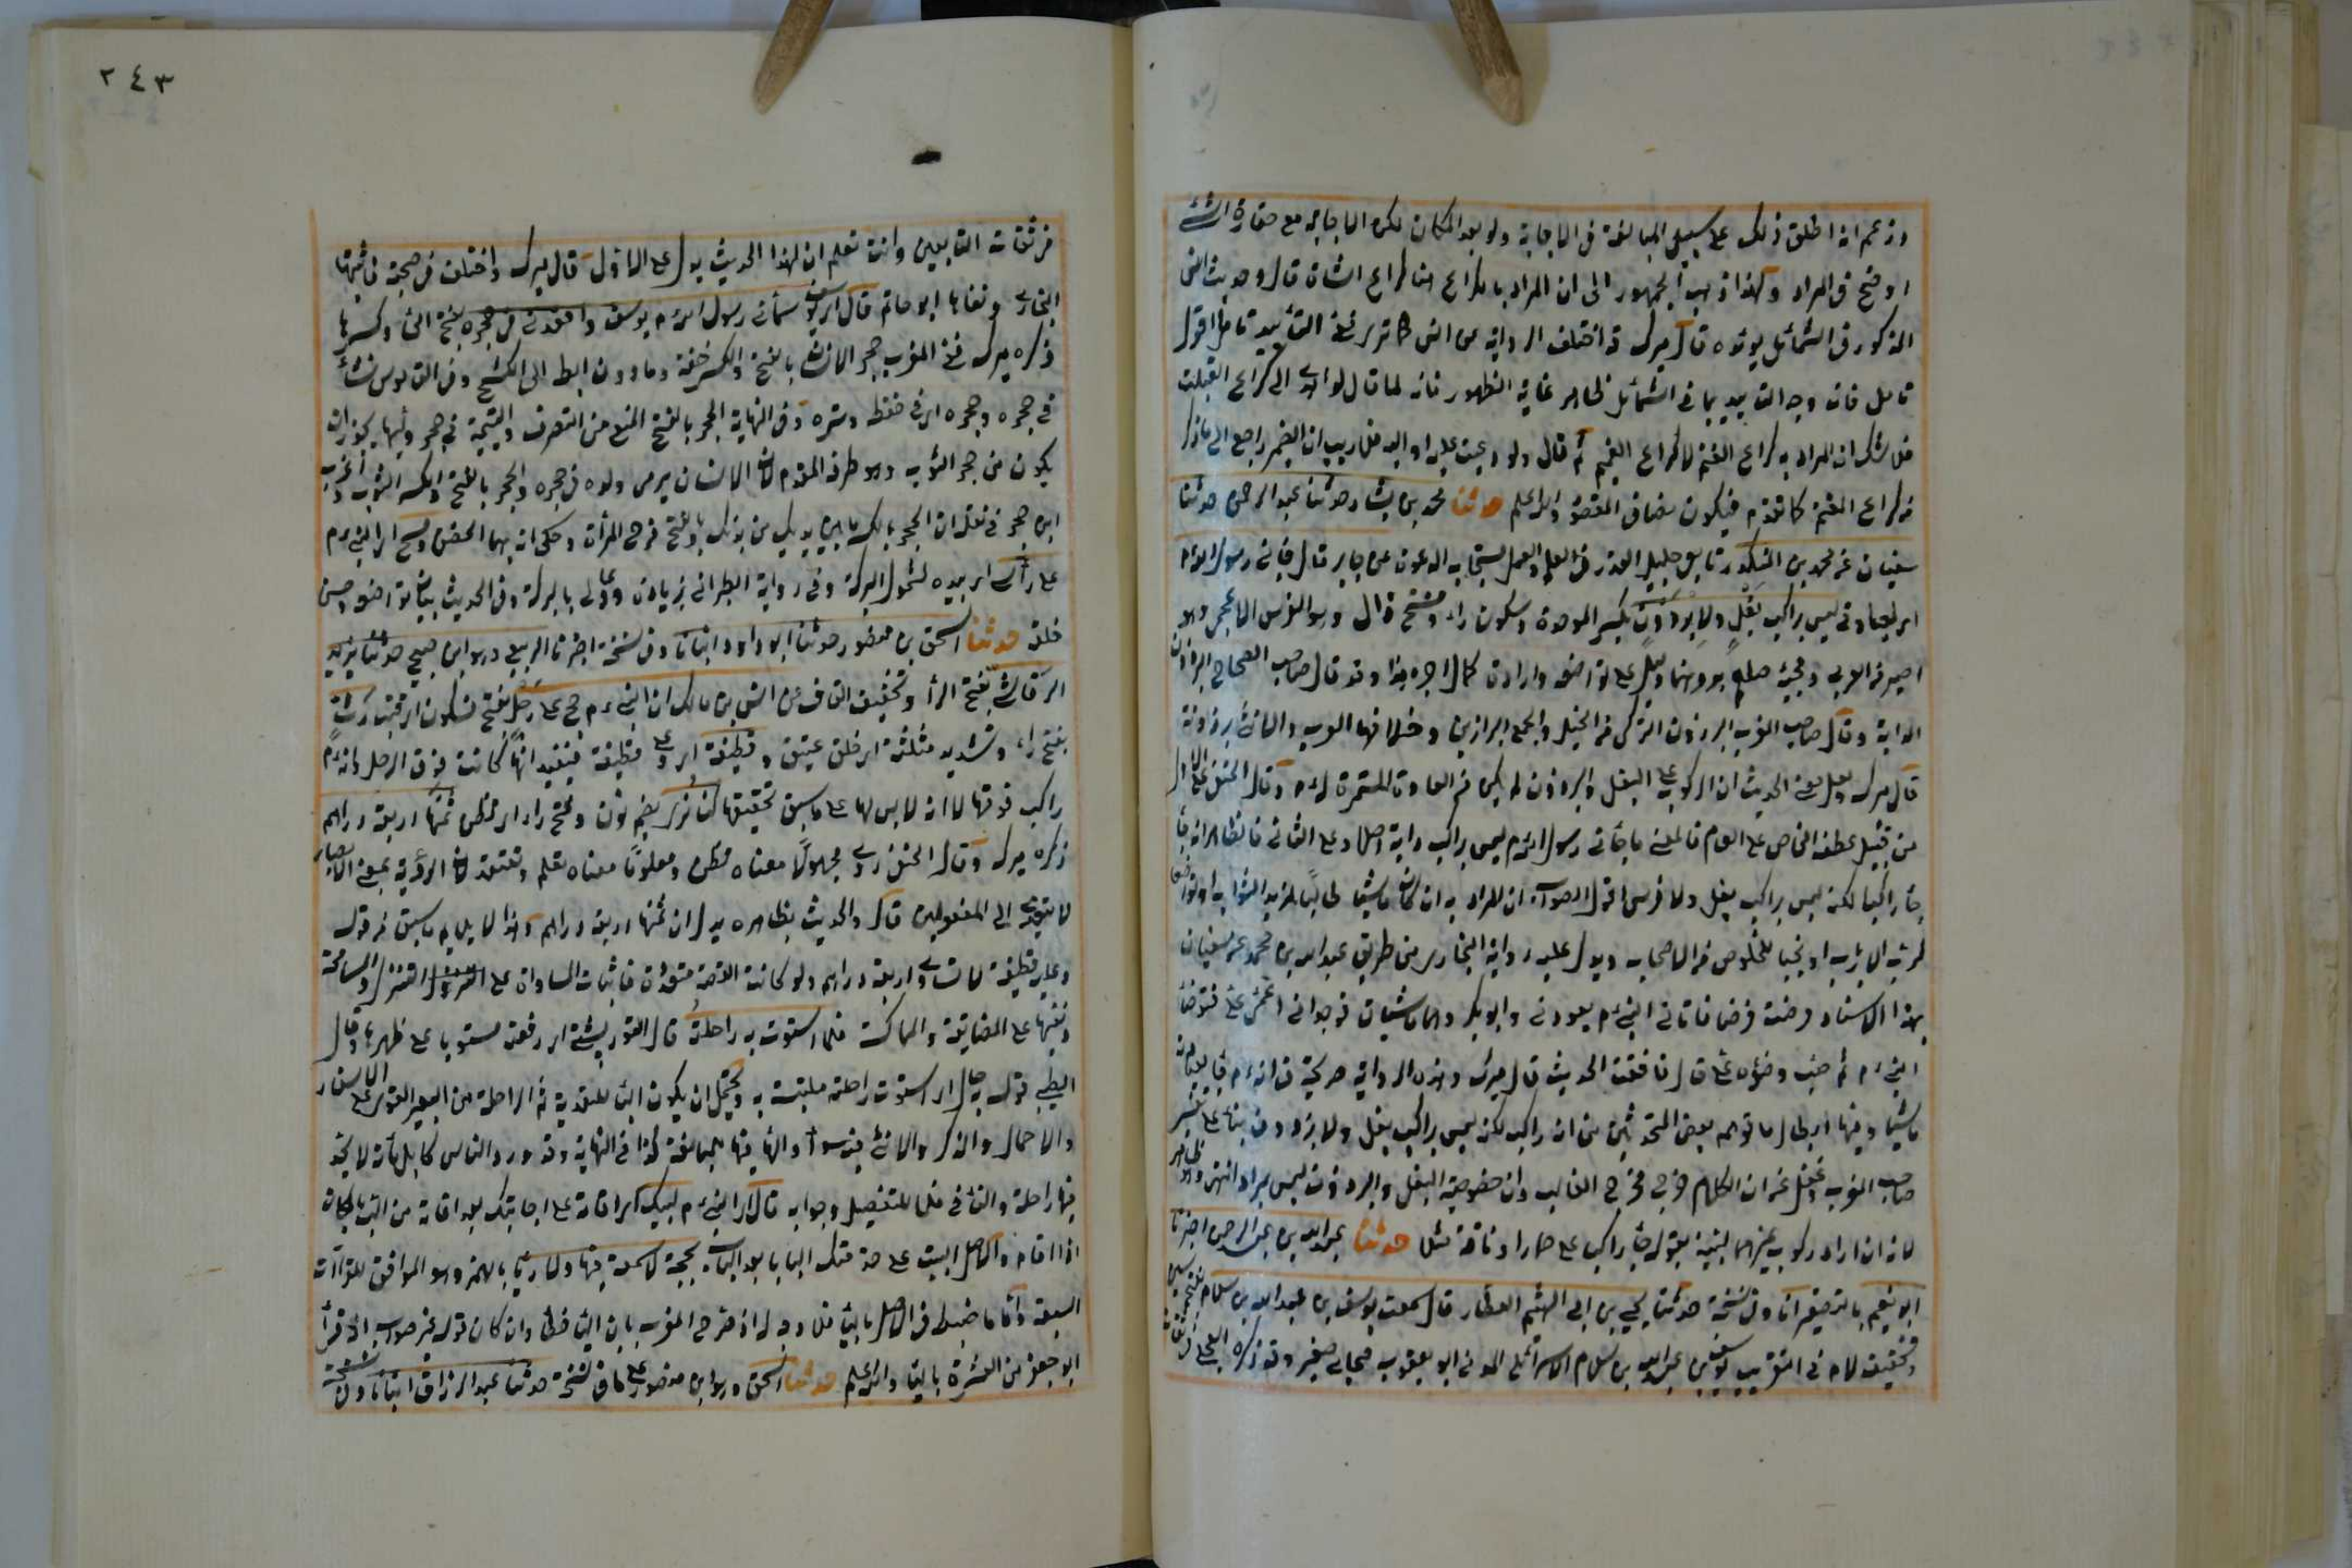 وزعم انه اطلق ذلك على سبيل المبالغة في الاجابة ولو بعد المكان لكن الاجابة مع حقارة الشئ
اوضح في المراد ولهذا ذهب الجمهور الى ان المراد بالكراع هنا كراع الشاة قال وحديث انس
المذكور في الشمائل يؤيده قال ميرك قد اختلف الرواية عن انس كما ترى ففي التأييد تأمل اقول
تأمل فان وجه التأييد بما في الشمائل ظاهر غاية الظهور فانه لما قال لو اهدي الى كراع لقبلت
فلا شك ان المراد به كراع الغنم لا كراع الغميم ثم قال ولو دعيت عليه او اليه فلا ريب ان الضمير راجع الى ما ذكر
من كراع الغنم كما تقدم فيكون والله اعلم حدثنا محمد بن بشار حدثنا عبد الرحمن حدثنا
سفيان عن محمد بن المنكدر تابعي جليل القدر في العلم والعمل مستجاب الدعوة عن جابر قال جاءني رسول الله م
اي لعيادتي ليس براكب بغل ولا برذون بكسر الموحدة وسكون راء وفتح ذال وهو الفرس الاعجمي وهو
اصبر من العربي يدل على تواضعه وارادة كمال اجره هذا وقد قال صاحب الصحاح البرذون
الدابة وقال صاحب المغرب البرذون التركي من الخيل والجمع البراذين وخلافها العراب والانثى برذونة
قال ميرك الحديث ان الركوب على البغل والبرذون لم يكن من العادة المستمرة له م وقال الحنفي
من قبيل عطف الخاص على العام فالمعنى ما جاءني رسول الله م ليس براكب دابة اصلا وعلى الثاني فالظاهر انه جاء
راكبا لكن ليس براكب بغل ولا فرس اقول الصواب ان المراد به انه كان ماشيا طالبا لمزيد الثواب
للخلوص من الاصحاب ويدل عليه رواية البخاري من طريق عبد الله بن محمد عن سفيان
بهذا الاسناد مرضت مرضا فاتاني النبي م يعودني وابو بكر وهما ماشيان فوجداني اغمي علي فتوضأ
النبي م ثم صب وضوءه علي قال فافقت الحديث قال ميرك وهذه الرواية صريحة في انه م جاء
ماشيا وفيها ابطال ما توهم بعض المتحدثين من انه راكب لكن ليس براكب بغل ولا برذون بناء على
صاحب المغرب وغفل عن ان الكلام خرج مخرج الغالب وان خصوصية البغل والبرذون ليس بمراد انتهى
لانه ان اراد ركوب غيرهما لبينه بقوله جاء راكبا على حمار او ناقة مثلا حدثنا عبد الله بن عبد الرحمن اخبرنا
ابو نعيم بالتصغير انا وفي نسخة حدثنا يحيى بن ابي الهيثم العطار قال سمعت يوسف بن عبد الله بن سلام
وتخفيف لام في التقريب يوسف بن عبد الله بن سلام الاسرائيلي المدني ابو يعقوب صحابي صغير وقد ذكره العجلي
٢٤٣
من ثقات التابعين وانت تعلم ان هذا الحديث يدل على الاول قال ميرك واختلف في صحبته فاثبتها
البخاري ونفاها ابو حاتم قال سماني رسول الله م يوسف واقعدني في حجره بفتح الحاء وكسرها
ذكره ميرك ففي المغرب حجر الانسان بالفتح والكسر حضنه وما دون ابطه الى الكشح وفي القاموس نشأ
في حجره وحجره اي في حفظه وستره وفي النهاية الحجر بالفتح المنع من التصرف واليتيمة في حجر وليها يجوز ان
يكون من حجر الثوب وهو طرفه المقدم لان الانسان يربي ولده في حجره والحجر بالفتح والكسر الثوب واغرب
ابن حجر في نقله ان الحجر بالكسر ما بين يديك من بدنك وبالفتح فرج المرأة وحكى انه بهما الحضن ومسح اي النبي م
على رأسي اي بيده لشمول البركة وفي رواية الطبراني زيادة ودعا لي بالبركة وفي الحديث بيان تواضعه وحسن
خلقه حدثنا اسحق بن منصور حدثنا ابو داود انبأنا وفي نسخة اخبرنا الربيع وهو ابن صبيح حدثنا يزيد
الرقاشي بفتح الراء وتخفيف القاف عن انس بن مالك ان النبي م حج على رحل بفتح فسكون اي قتب رث
بفتح راء وتشديد مثلثة اي خلق عتيق وقطيفة اي وعلى قطيفة فيفيد انها كانت فوق الرحل وانه م
راكب فوقها لا انه لابس لها على ما سبق تحقيقها كنا نرى بضم نون وفتح راء اي نظن ثمنها اربعة دراهم
ذكره ميرك وقال الحنفي نرى مجهولا معناه نظن ومعلوما معناه نعلم ونعتقد لان الرؤية بمعنى الابصار
لا يتعدى الى المفعولين قال والحديث بظاهره يدل ان ثمنها اربعة دراهم وهذا لا يلايم ما سبق من قوله
وعليه قطيفة لا تساوي اربعة دراهم ولو كانت القصة متعددة فاثبات المساواة على التنزل والمسامحة
ونفيها على المضايقة والمماكسة فلما استوت به راحلته قال التوربشتي اي رفعته مستويا على ظهرها وقال
الطيبي قوله به حال اي استوت راحلته ملتبسة به ويحتمل ان يكون الباء للتعدية ثم الراحلة من البعير القوي على الاسفار
والاحمال والذكر والانثى فيه سواء والهاء فيها للمبالغة كذا في النهاية وقد ورد الناس كابل مائة لا تجد
فيها راحلة والفاء في فلما للتفصيل وجوابه قال اي النبي م لبيك اي اقامة على اجابتك بعد اقامة من الب بالمكان
اذا اقام والب على حد متك البابا بعد الباب بحجة لا سمعة فيها ولا رئاء بالهمز وهو الموافق للقراآت
السبعة واما ما ضبط في الاصل بالياء فلا وجه له اذ صرح المغرب بان الياء خطأ وان كان قوله غير صواب اذ قرأ
ابو جعفر من العشرة بالياء والله اعلم حدثنا اسحق وهو ابن منصور على ما في نسخة حدثنا عبد الرزاق انبأنا وفي نسخة